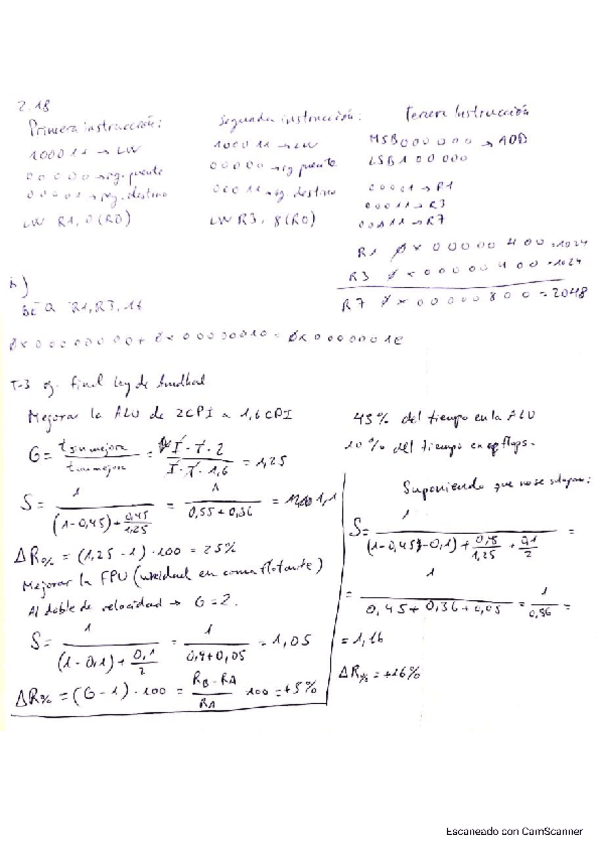 2.18
Primera instrucción:
100011 → LW
00000 → rg. fuente
00001 → rg. destino
LW R1, 0(R0)
Segunda instrucción:
100011 → LW
00000 → rg fuente
00011 → rg. destino
LW R3, 8(R0)
Tercera Instrucción
MSB 000000 → ADD
LSB 100000
00001 → R1
00011 → R3
00111 → R7
R1 0x00000400 = 1024
R3 0x00000400 = 1024
R7 0x00000800 = 2048
b)
BEQ R1, R3, 16
T-3 ej. final Ley de
Mejorar la ALU de 2CPI a 1,6CPI
G = t sin mejora / t con mejora = I·T·2 / I·T·1,6 = 1,25
S = 1 / ((1-0,45)+ 0,45/1,25) = 1 / (0,55+0,36) = 1,1
ΔR% = (1,25 - 1) · 100 = 25%
Mejorar la FPU (unidad en coma flotante)
Al doble de velocidad → G=2.
S = 1 / ((1-0,1)+ 0,1/2) = 1 / (0,9+0,05) = 1,05
ΔR% = (G-1) · 100 = (RB - RA)/RA · 100 = +5%
45% del tiempo en la ALU
10% del tiempo en
Suponiendo que no se solapan:
S = 1 / ((1-0,45-0,1)+ 0,45/1,25 + 0,1/2) =
= 1 / (0,45+0,36+0,05) = 1/0,86 =
= 1,16
ΔR% = +16%
Escaneado con CamScanner